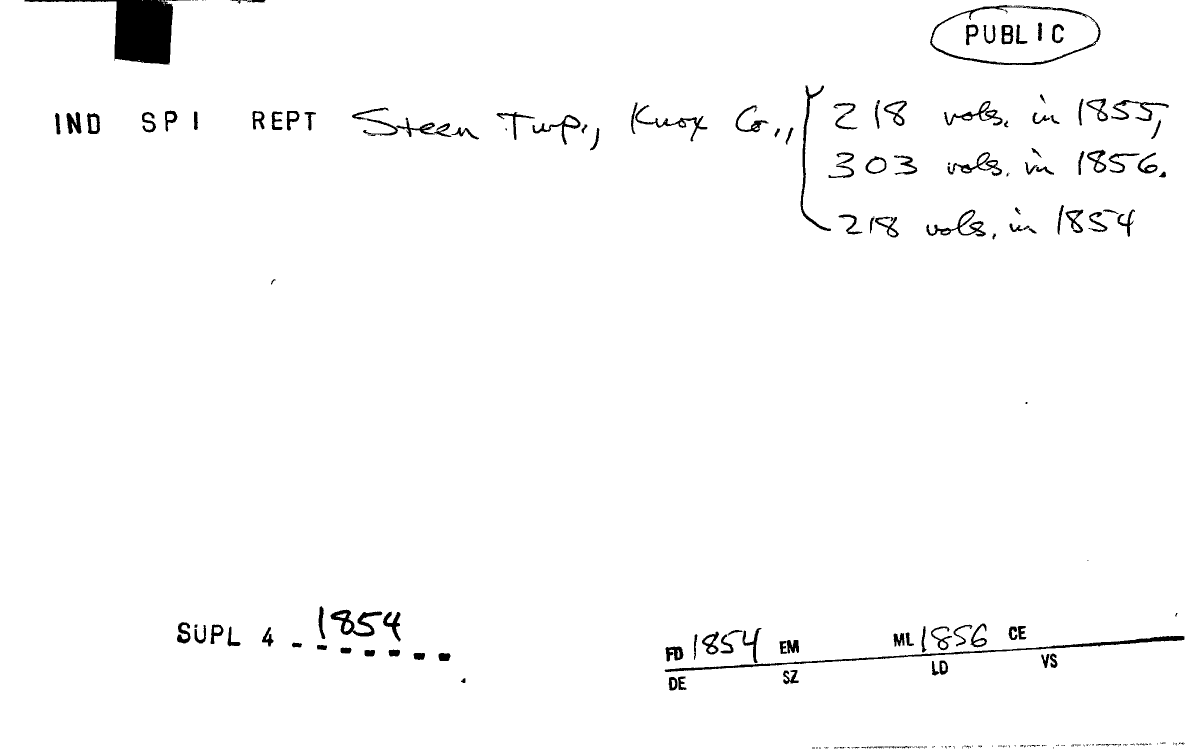 PUBLIC
IND SPI REPT Steen Twp., Knox Co., 218 vols. in 1855,
303 vols. in 1856.
218 vols. in 1854
SUPL 4 - 1854
FD 1854 EM ML 1856 CE
DE SZ LD VS